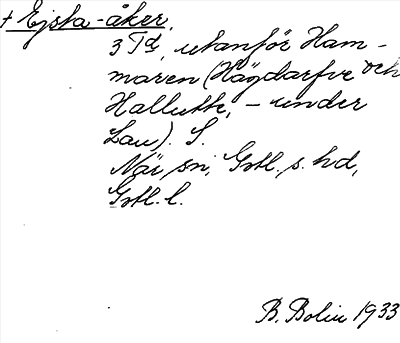 + Ejsta-åker,
3 Td, utanför Ham-
maren (Hägdarfve och
Hallutte, – under
Lau). S.
När sn, Gotl. s. hd,
Gotl. l.
B. Bolin 1933